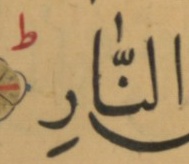 النَّارِ ط